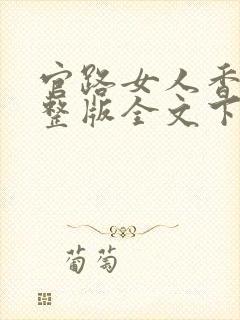 官路女人香
整版全文下
葡萄